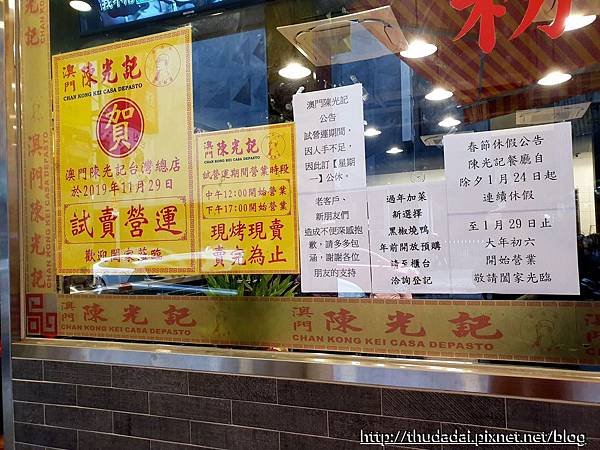 澳門 陳光記
CHAN KONG KEI CASA DEPASTO
賀
澳門陳光記台灣總店
於2019年11月29日
試賣營運
歡迎闔家蒞臨
澳門 陳光記
CHAN KONG KEI CASA DEPASTO
試營運期間營業時段
中午12:00開始營業
下午17:00開始營業
現烤現賣
賣完為止
澳門陳光記
公告
試營運期間,
因人手不足,
因此訂【星期
一】公休。
老客戶、
新朋友們
造成不便深感抱
歉,請多多包
涵,謝謝各位
朋友的支持
過年加菜
新選擇
黑椒燒鴨
年前開放預購
請至櫃台
洽詢登記
春節休假公告
陳光記餐廳自
除夕1月24日起
連續休假
至1月29日止
大年初六
開始營業
敬請闔家光臨
澳門陳光記
澳門 陳光記
CHAN KONG KEI CASA DEPASTO
澳門 陳光記
CHAN KONG KEI CASA DEPASTO
http://thudadai.pixnet.net/blog